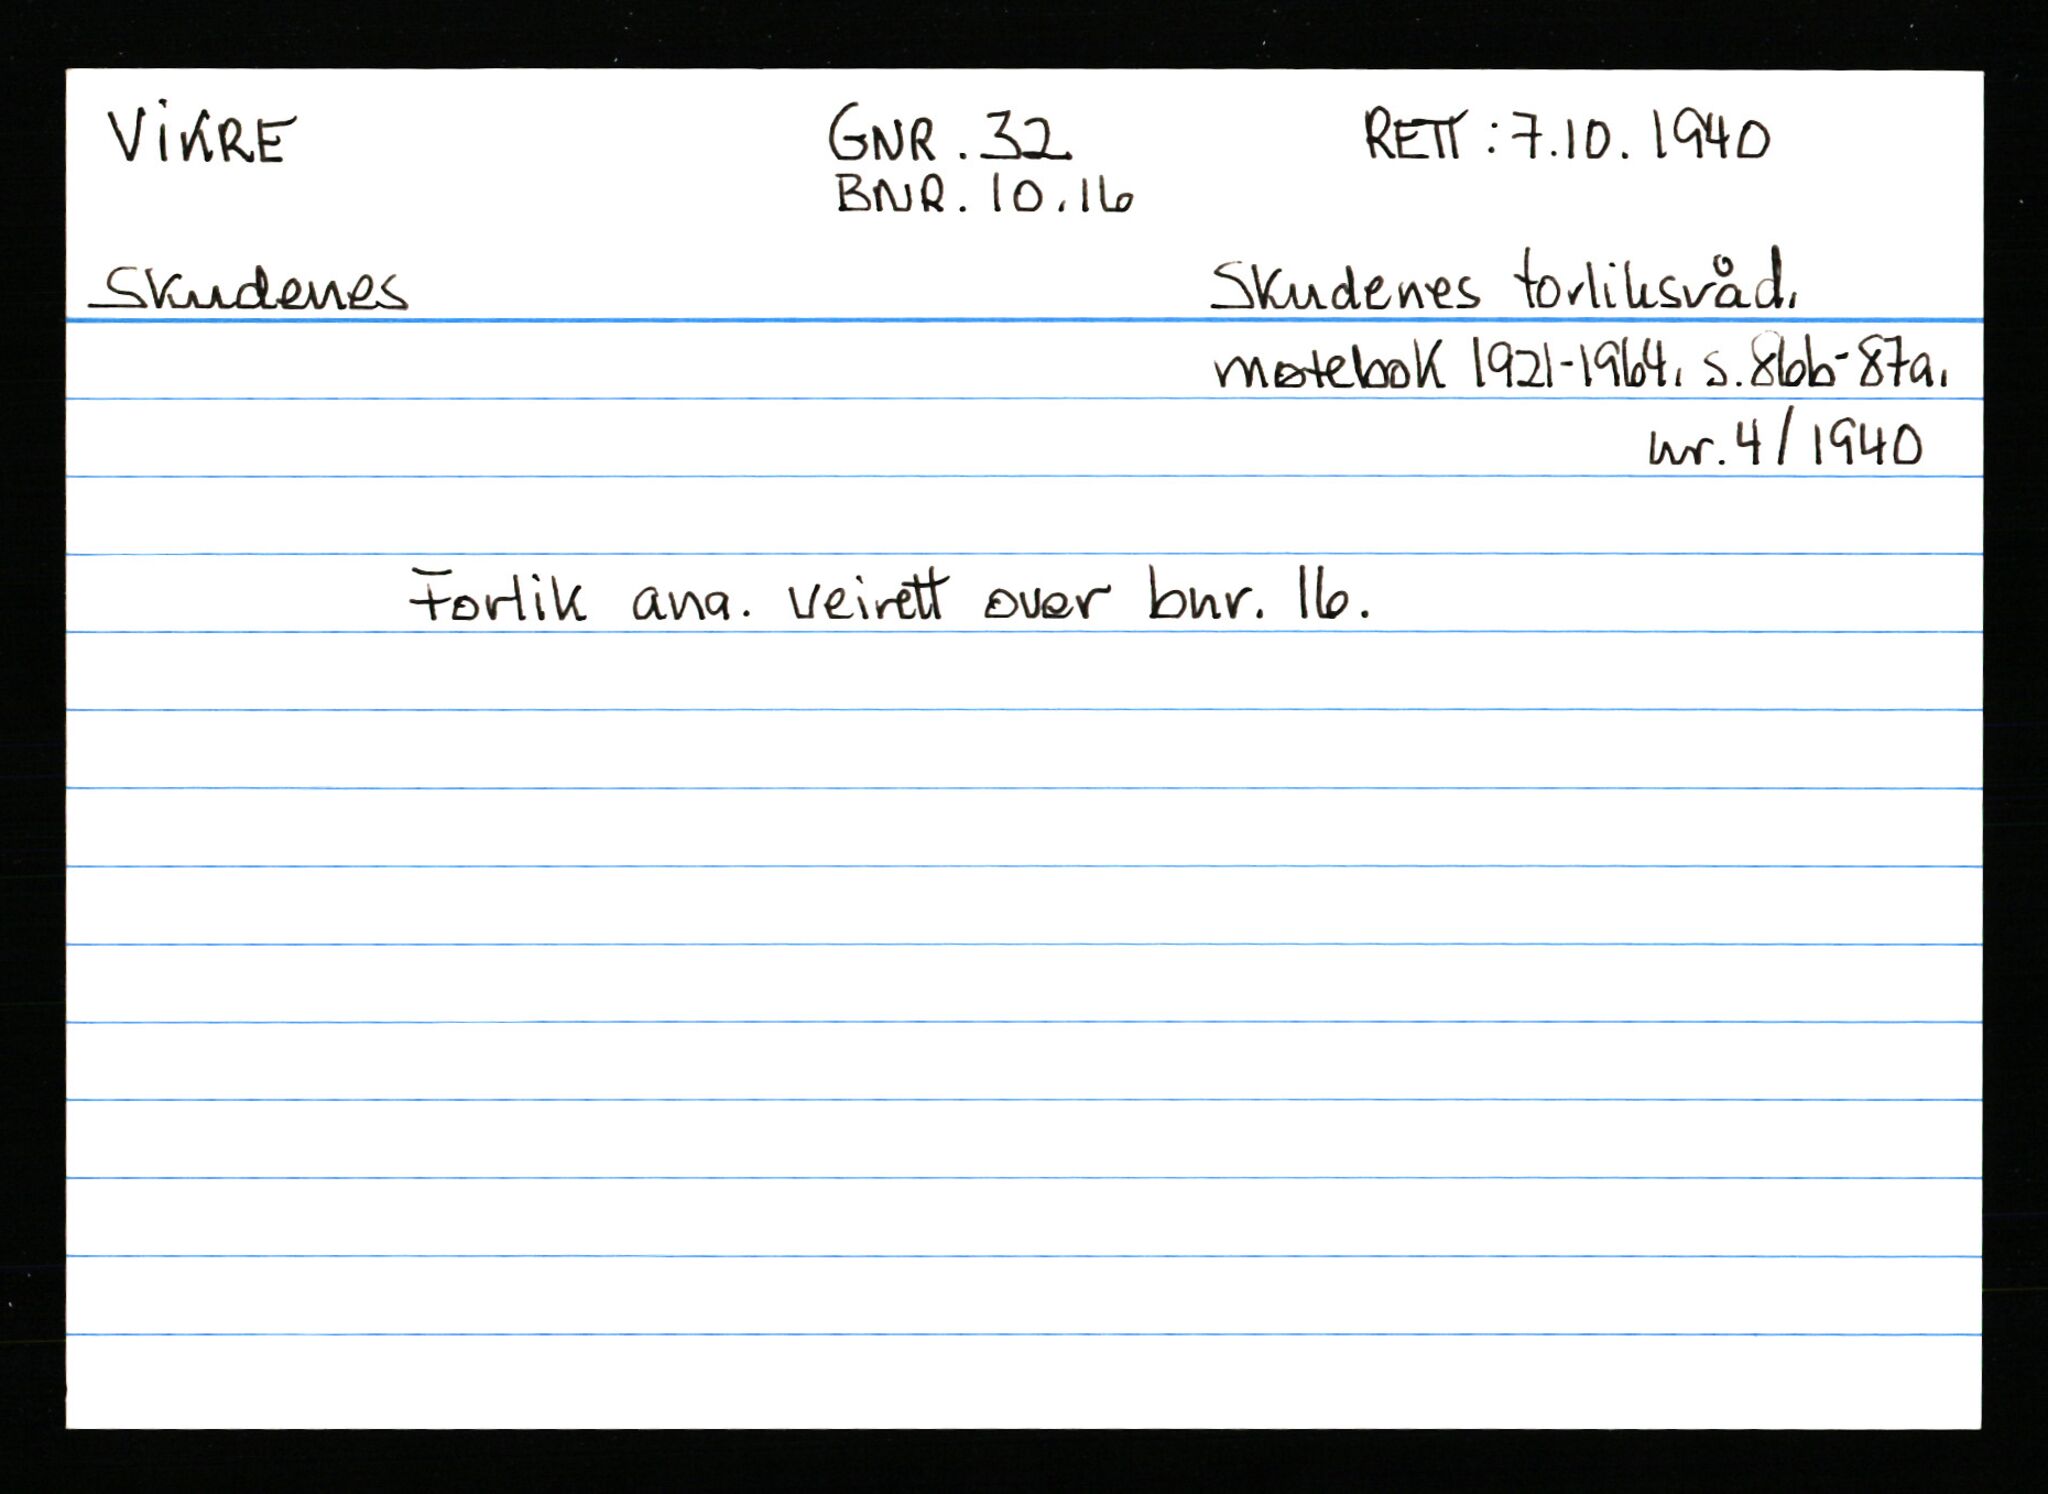 VIKRE GNR. 32 RETT: 7.10.1940
BNR. 10.16
Skudenes Skudenes forliksråd.
møtebok 1921-1964. s. 86b-87a.
nr. 4/1940
Forlik ang. veirett over bnr. 16.